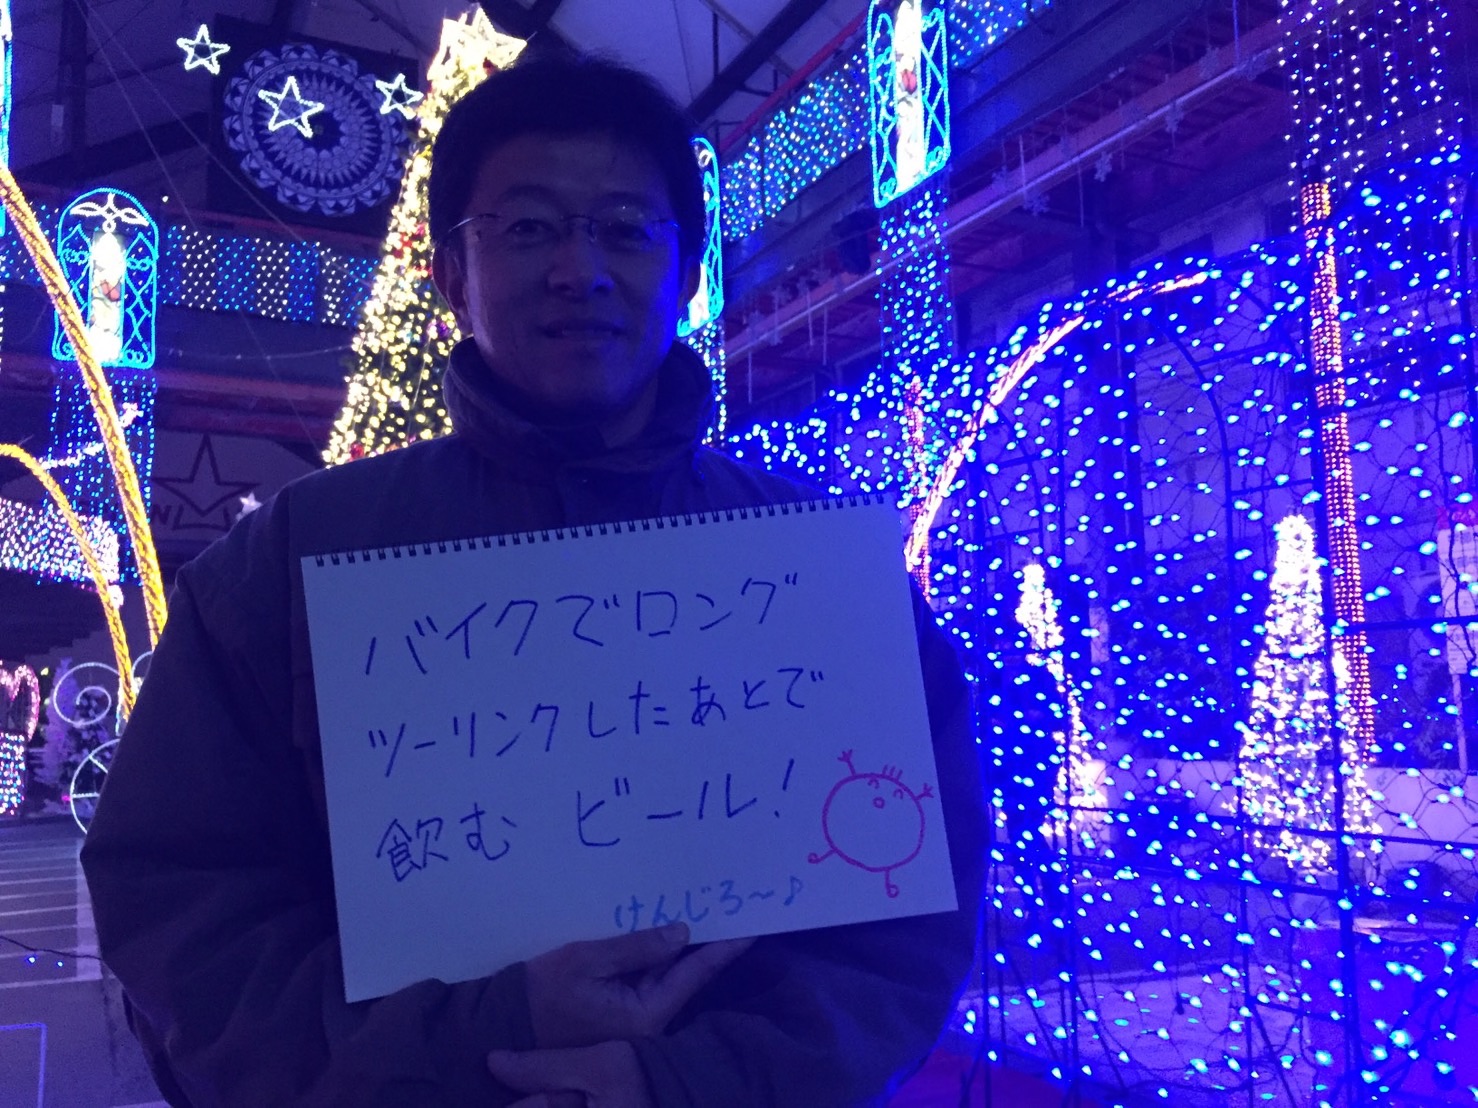 バイクでロング
ツーリンクしたあとで
飲む ビール!
けんじろ〜♪